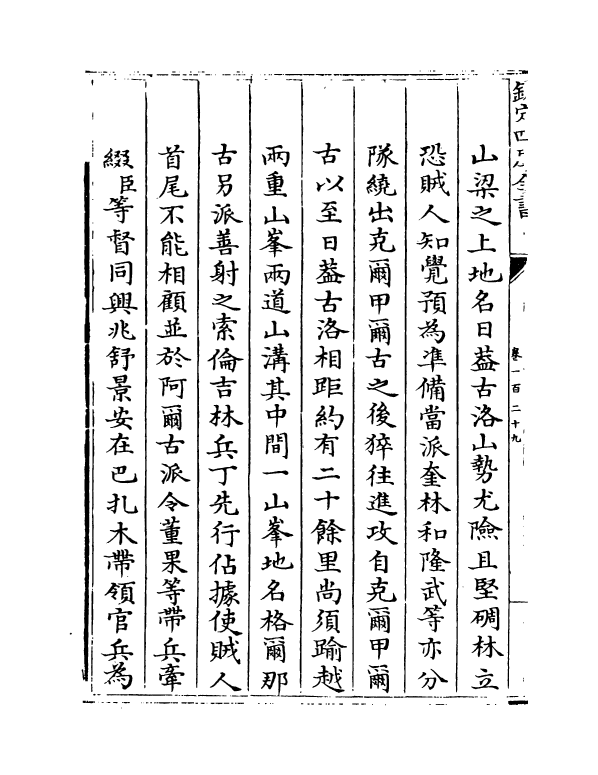 欽定四庫全書
卷一百二十九
山梁之上地名日葢古洛山勢尤險且堅碉林立
恐賊人知覺預為準備當派奎林和隆武等亦分
隊繞出克爾甲爾古之後猝往進攻自克爾甲爾
古以至日葢古洛相距約有二十餘里尚須踰越
兩重山峯兩道山溝其中間一山峯地名格爾那
古另派善射之索倫吉林兵丁先行佔據使賊人
首尾不能相顧並於阿爾古派令董果等帶兵牽
綴臣等督同興兆舒景安在巴扎木帶領官兵為